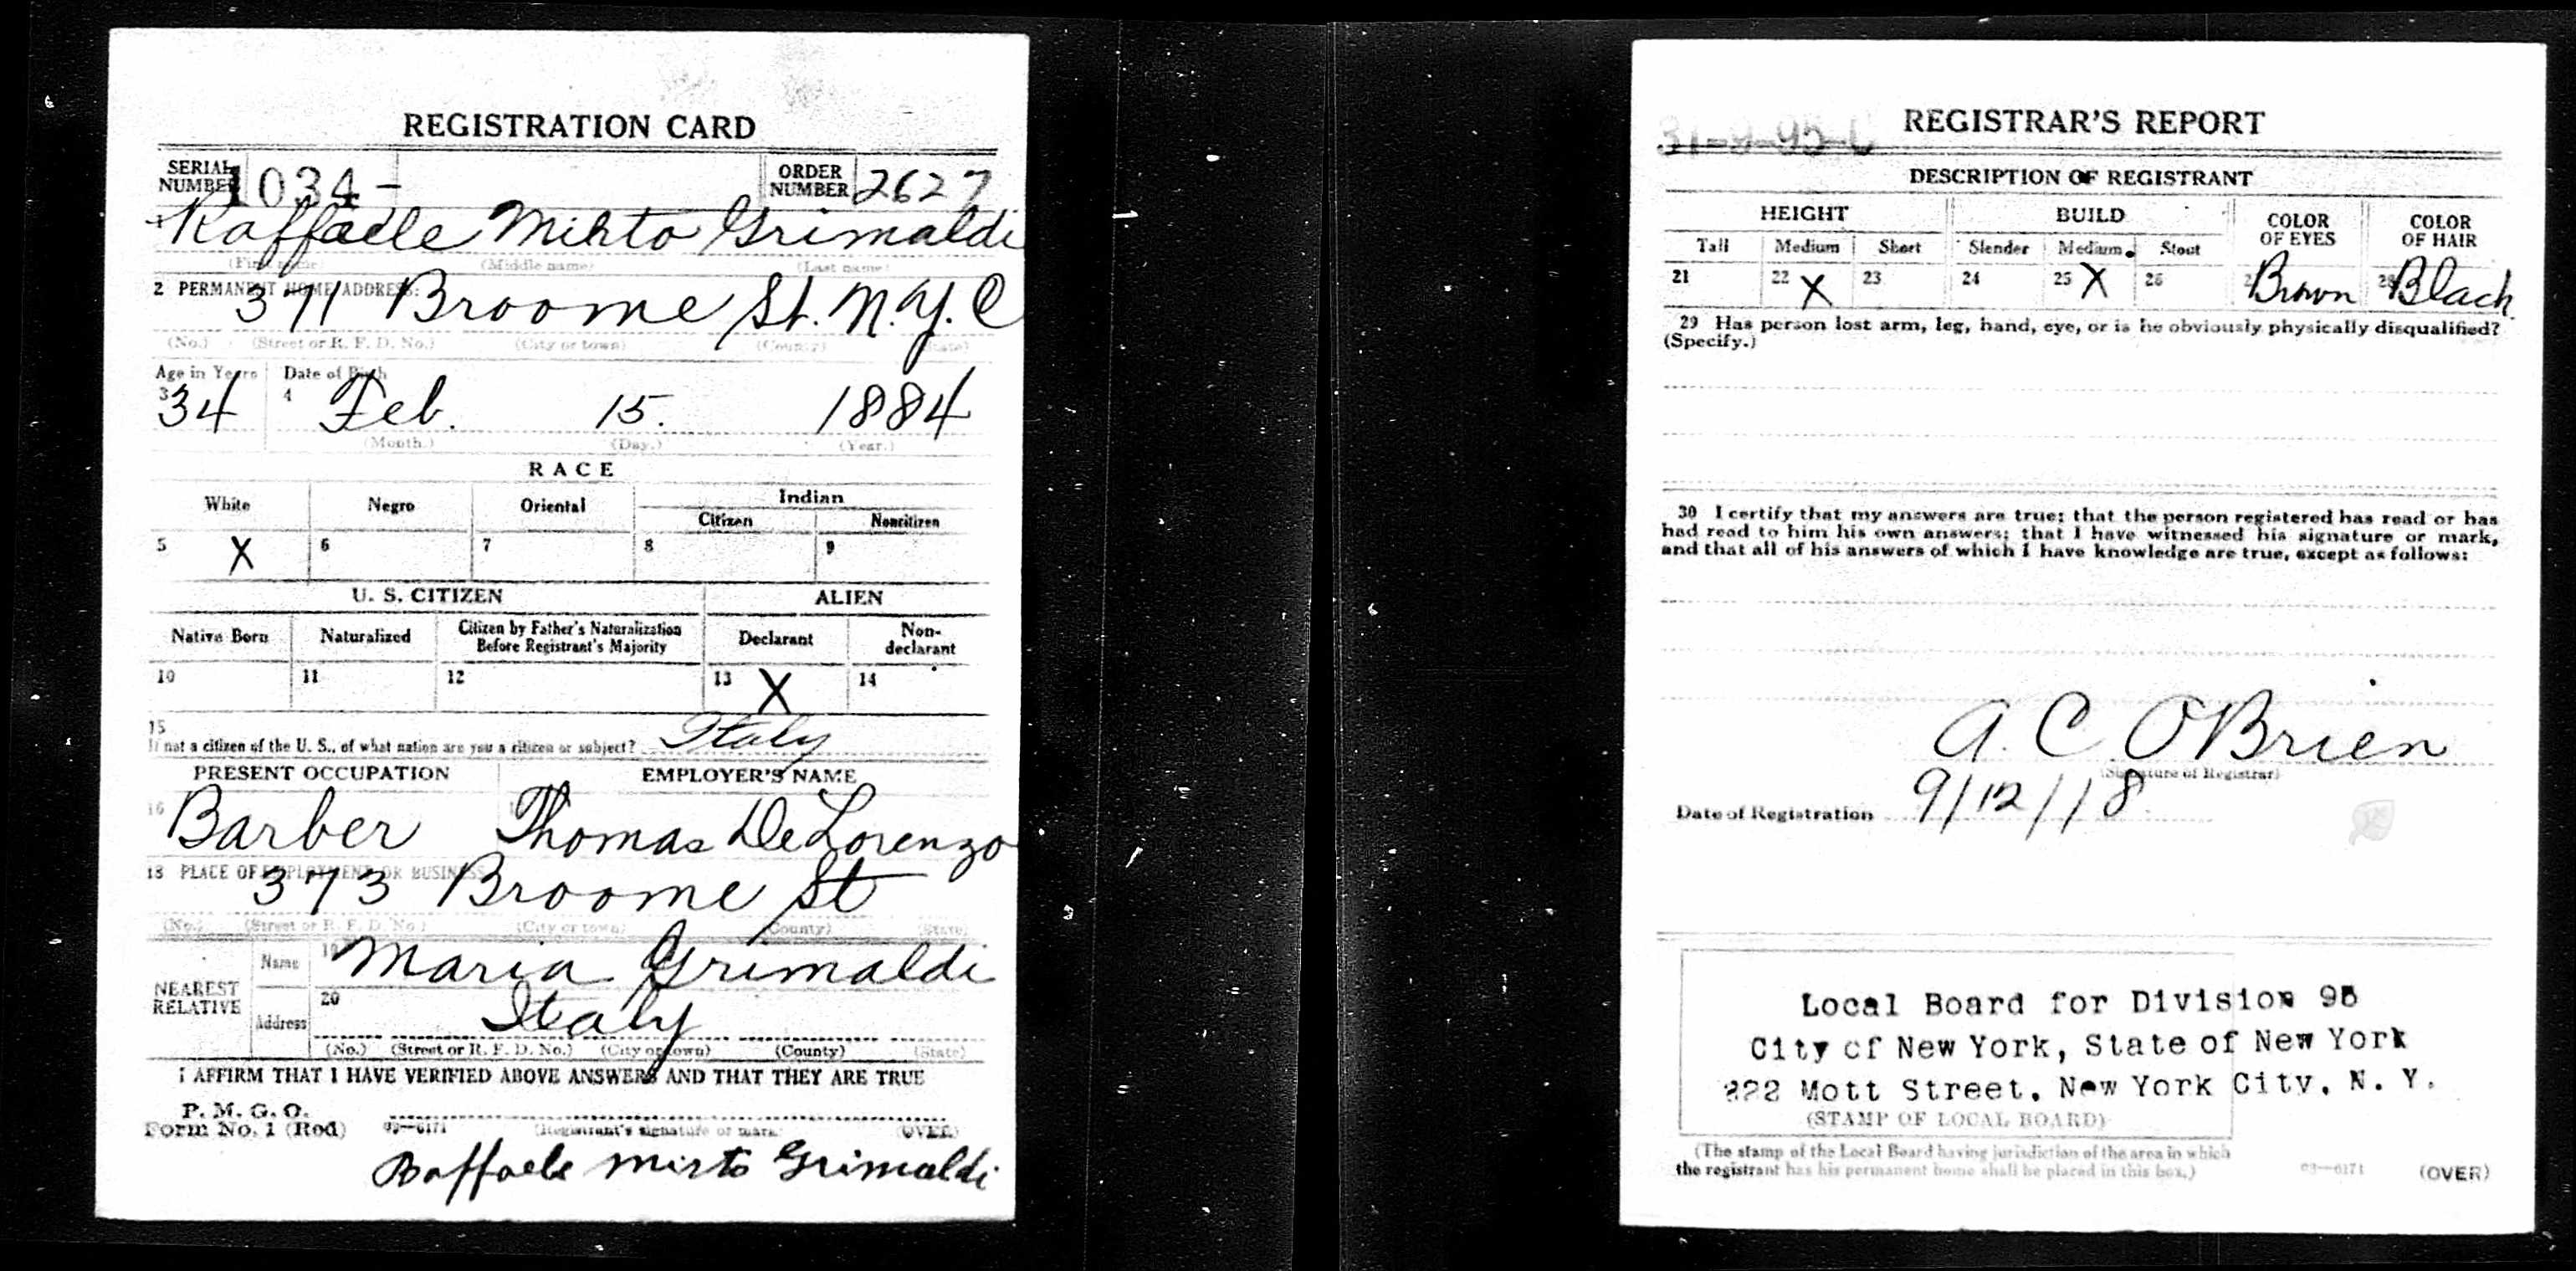 REGISTRATION CARD
SERIAL NUMBER 1034- ORDER NUMBER 2627
Raffaele Mihto Grimaldi
(First name) (Middle name) (Last name)
2 PERMANENT HOME ADDRESS:
371 Broome St. N.Y.C
(No.) (Street or R. F. D. No.) (City or town) (County) (State)
Age in Years Date of Birth
3 34 4 Feb. 15. 1884
(Month.) (Day.) (Year.)
RACE
White Negro Oriental Indian
Citizen Noncitizen
5 X 6 7 8 9
U. S. CITIZEN ALIEN
Native Born Naturalized Citizen by Father's Naturalization Before Registrant's Majority Declarant Non-declarant
10 11 12 13 X 14
15
If not a citizen of the U. S., of what nation are you a citizen or subject? Italy
PRESENT OCCUPATION EMPLOYER'S NAME
16 Barber Thomas DeLorenzo
18 PLACE OF EMPLOYMENT OR BUSINESS
373 Broome St
(No.) (Street or R. F. D. No.) (City or town) (County) (State)
NEAREST RELATIVE Name 19 Maria Grimaldi
Address 20 Italy
(No.) (Street or R. F. D. No.) (City or town) (County) (State)
I AFFIRM THAT I HAVE VERIFIED ABOVE ANSWERS AND THAT THEY ARE TRUE
P. M. G. O.
Form No. 1 (Red) 03—6171 (Registrant's signature or mark) (OVER)
Raffaele Mirto Grimaldi
REGISTRAR'S REPORT
31-9-95-C
DESCRIPTION OF REGISTRANT
HEIGHT BUILD COLOR OF EYES COLOR OF HAIR
Tall Medium Short Slender Medium Stout
21 22 X 23 24 25 X 26 Brown 28 Black
29 Has person lost arm, leg, hand, eye, or is he obviously physically disqualified?
(Specify.)
30 I certify that my answers are true; that the person registered has read or has
had read to him his own answers; that I have witnessed his signature or mark,
and that all of his answers of which I have knowledge are true, except as follows:
A. C. O'Brien
(Signature of Registrar)
Date of Registration 9/12/18
Local Board for Division 95
City of New York, State of New York
222 Mott Street, New York City, N. Y.
(STAMP OF LOCAL BOARD)
(The stamp of the Local Board having jurisdiction of the area in which
the registrant has his permanent home shall be placed in this box.)
03—6171 (OVER)